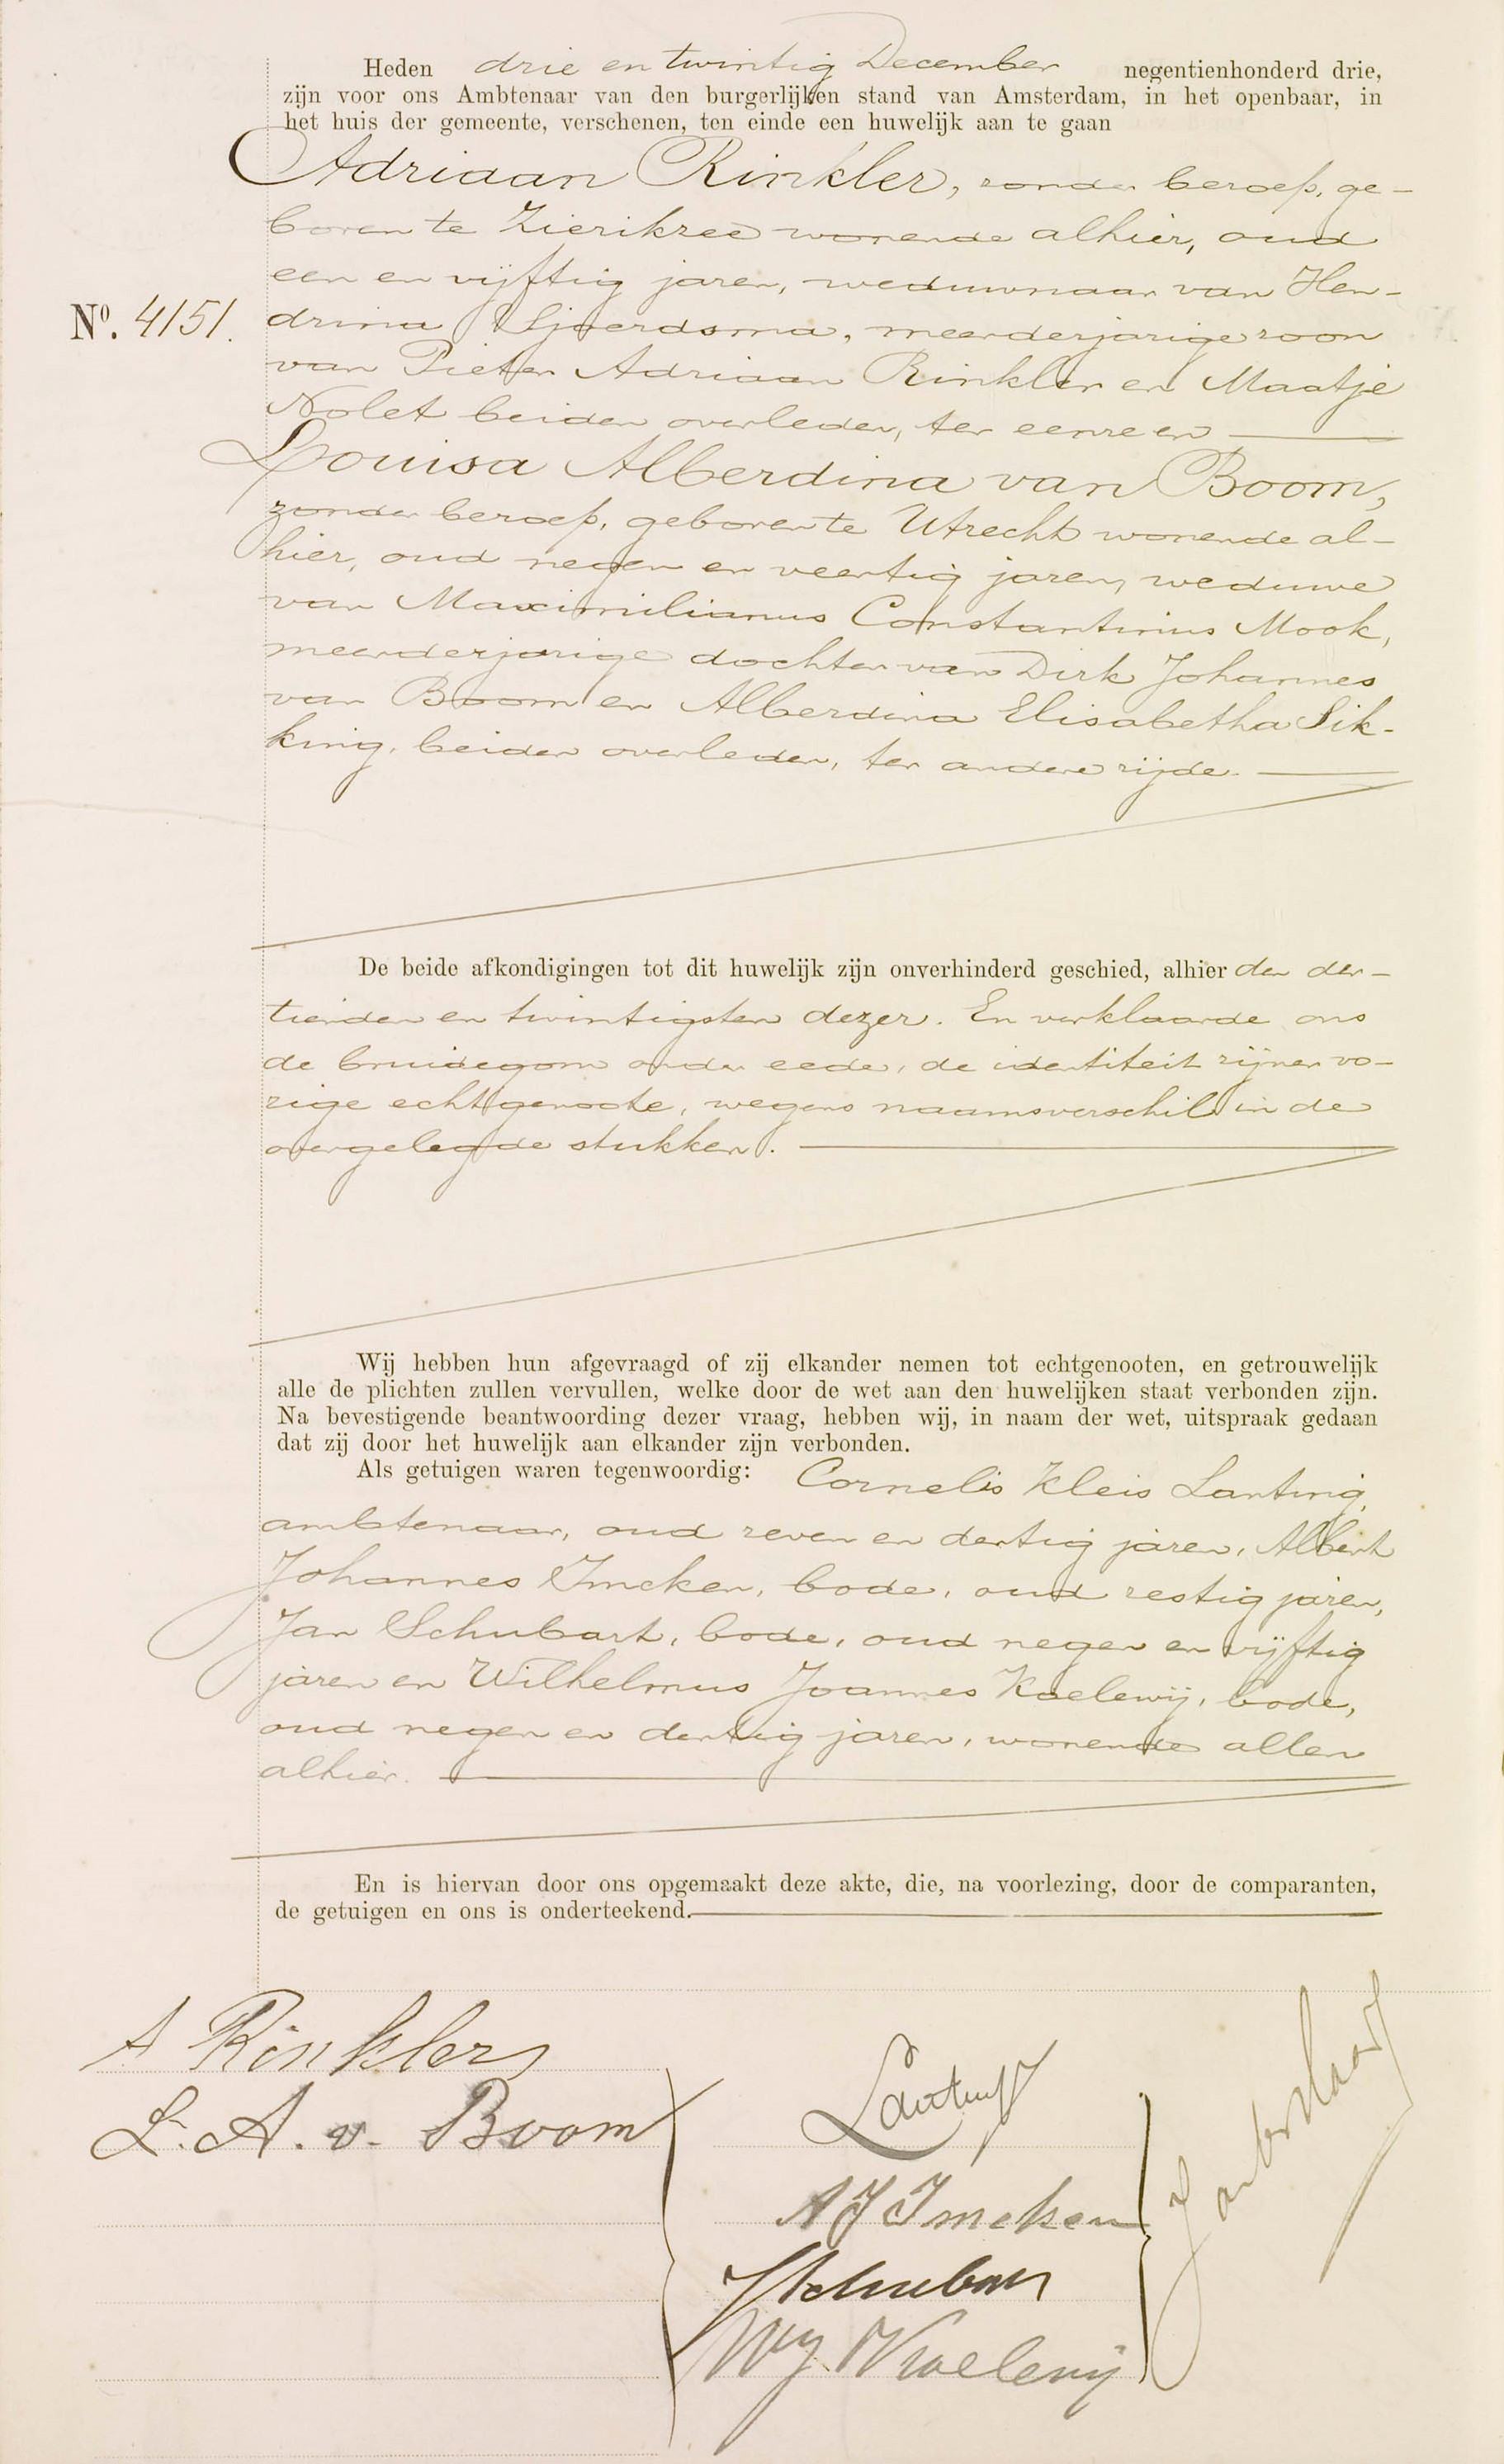 Heden drie en twintig December negentienhonderd drie,
zijn voor ons Ambtenaar van den burgerlijken stand van Amsterdam, in het openbaar, in
het huis der gemeente, verschenen, ten einde een huwelijk aan te gaan
Adriaan Rinkler, zonder beroep, ge-
boren te Zierikzee wonende alhier, oud
een en vijftig jaren, weduwnaar van Hen-
No. 4151. drina Sjoerdsma, meerderjarige zoon
van Pieter Adriaan Rinkler en Maatje
Nolet beiden overleden, ter eenre en
Louisa Alberdina van Boom,
zonder beroep, geboren te Utrecht wonende al-
hier, oud negen en veertig jaren, weduwe
van Maximilianus Constantinus Mook,
meerderjarige dochter van Dirk Johannes
van Boom en Alberdina Elisabetha Sik-
king, beiden overleden, ter andere zijde.
De beide afkondigingen tot dit huwelijk zijn onverhinderd geschied, alhier den der-
tienden en twintigsten dezer. En verklaarde ons
de bruidegom onder eede, de identiteit zijner vo-
rige echtgenoote, wegens naamsverschil in de
overgelegde stukken.
Wij hebben hun afgevraagd of zij elkander nemen tot echtgenooten, en getrouwelijk
alle de plichten zullen vervullen, welke door de wet aan den huwelijken staat verbonden zijn.
Na bevestigende beantwoording dezer vraag, hebben wij, in naam der wet, uitspraak gedaan
dat zij door het huwelijk aan elkander zijn verbonden.
Als getuigen waren tegenwoordig: Cornelis Kleis Lanting,
ambtenaar, oud zeven en dertig jaren, Albert
Johannes Imeken, bode, oud zestig jaren,
Jan Schubart, bode, oud negen en vijftig
jaren en Wilhelmus Joannes Koelewij, bode,
oud negen en dertig jaren, wonende allen
alhier.
En is hiervan door ons opgemaakt deze akte, die, na voorlezing, door de comparanten,
de getuigen en ons is onderteekend.
A Rinkler
L. A. v. Boom
Lanting
A J Imeken
J Schubart
WJ Koelewij